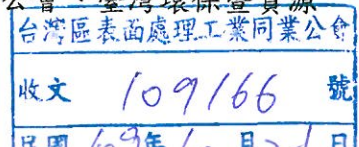 公會、臺灣環保暨資源
台灣區表面處理工業同業公會
收文 109166 號
民國 109年 月 日